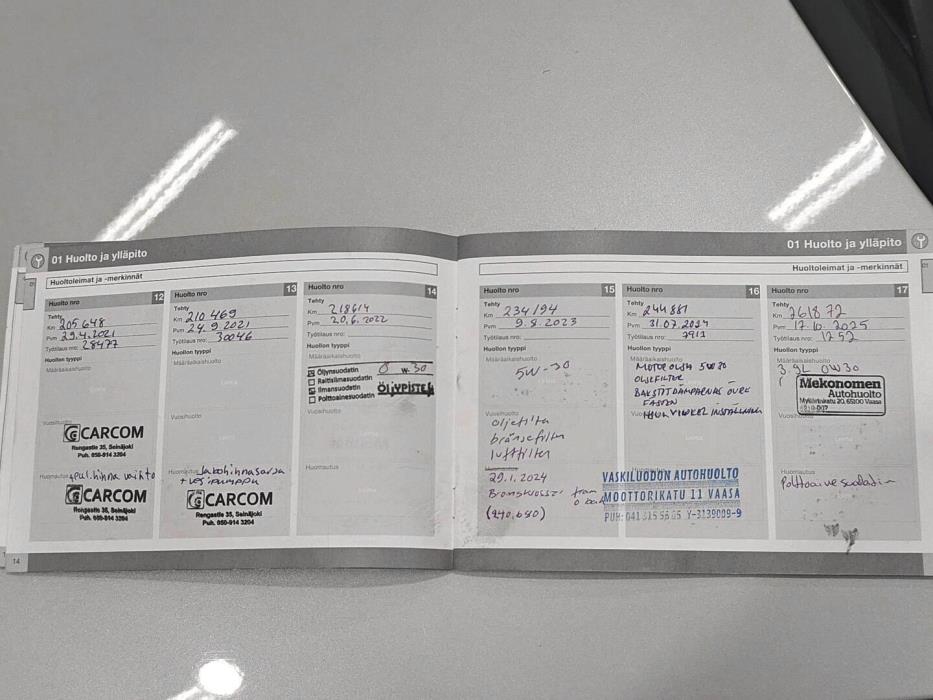 01 Huolto ja ylläpito
Huoltoleimat ja -merkinnät
Huolto nro 12
Tehty
Km 205 648
Pvm 29.4.2021
Työtilaus nro: 28477
Huollon tyyppi
Määräaikaishuolto
Vuosihuolto
CARCOM
Rengastie 35, Seinäjoki
Puh. 050-914 3204
Huomautus
hihna vaihto
CARCOM
Rengastie 35, Seinäjoki
Puh. 050-914 3204
14
Huolto nro 13
Tehty
Km 210 469
Pvm 24.9.2021
Työtilaus nro: 30046
Huollon tyyppi
Määräaikaishuolto
Vuosihuolto
Huomautus Jakohihnasarja
+ vesipumppu
CARCOM
Rengastie 35, Seinäjoki
Puh. 050-914 3204
Huolto nro 14
Tehty
Km 218614
Pvm 20.6.2022
Työtilaus nro:
Huollon tyyppi
Määräaikaishuolto
Öljynsuodatin 0 w-30
Raitisilmasuodatin
Ilmansuodatin ÖLJYPISTE
Polttoainesuodatin
Vuosihuolto
Huomautus
01 Huolto ja ylläpito
Huoltoleimat ja -merkinnät
Huolto nro 15
Tehty
Km 234194
Pvm 9.8.2023
Työtilaus nro:
Huollon tyyppi
Määräaikaishuolto
5W-30
Vuosihuolto
oljefilter
bränslefilter
luftfilter
Huomautus
29.1.2024
Bromsklossar fram
(240.680)
Huolto nro 16
Tehty
Km 244 881
Pvm 31.07.2024
Työtilaus nro: 7913
Huollon tyyppi
Määräaikaishuolto
MOTOROLJA 5W30
OLJEFILTER
BAKSTÖTDÄMPARNAS ÖVRE
FÄSTEN
HJULVINKEL INSTÄLLNING
Vuosihuolto
Huomautus
VASKILUODON AUTOHUOLTO
MOOTTORIKATU 11 VAASA
PUH: 041 315 5605 Y-3139009-9
Huolto nro 17
Tehty
Km 261872
Pvm 17.10.2025
Työtilaus nro: 1252
Huollon tyyppi
Määräaikaishuolto
3,9L 0W30
Mekonomen
Autohuolto
Myllärinkatu 20, 65100 Vaasa
Vuosihuolto
Huomautus
Polttoainesuodatin